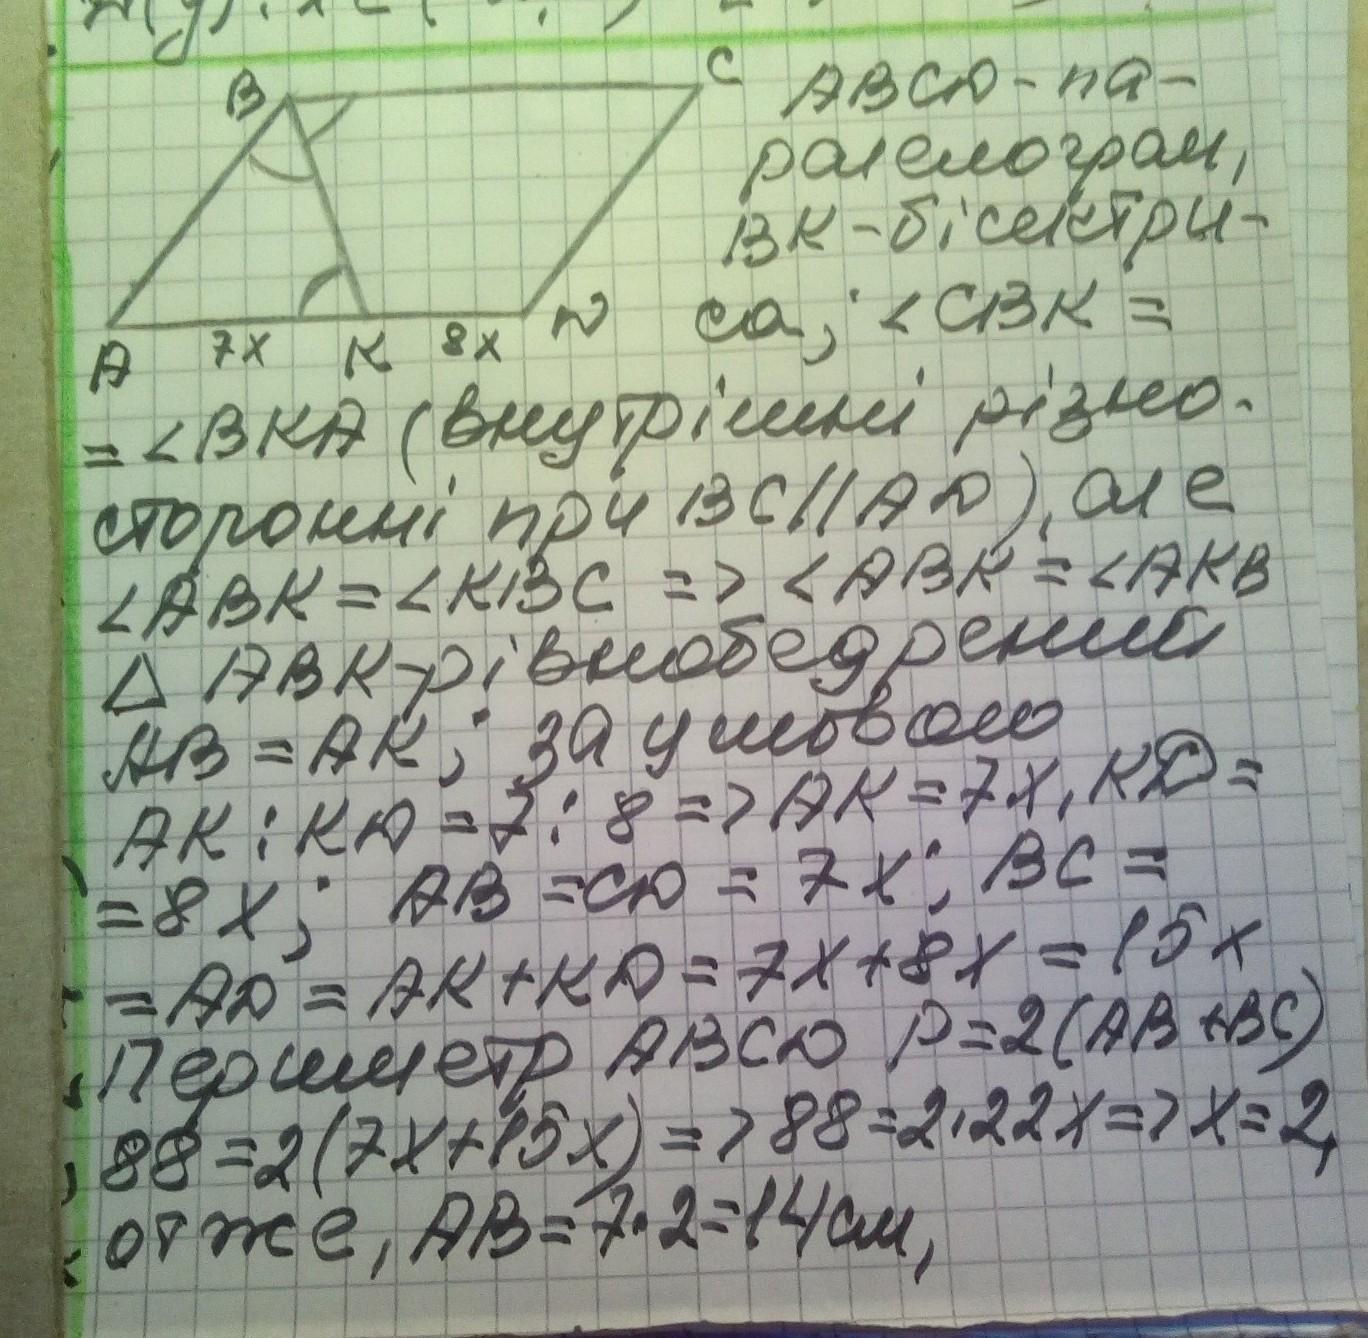 B
C
A
7x
K
8x
D
ABCD - па-
ралелограм,
BK - бісектри-
са; <CBK =
= <BKA (внутрішні різно-
сторонні при BC||AD), але
<ABK = <KBC => <ABK = <AKB
△ ABK - рівнобедрений
AB = AK; за умовою
AK : KD = 7 : 8 => AK = 7x, KD =
= 8x; AB = CD = 7x; BC =
= AD = AK + KD = 7x + 8x = 15x
Периметр ABCD P = 2(AB + BC)
88 = 2(7x + 15x) => 88 = 2·22x => x = 2,
отже, AB = 7·2 = 14 см,